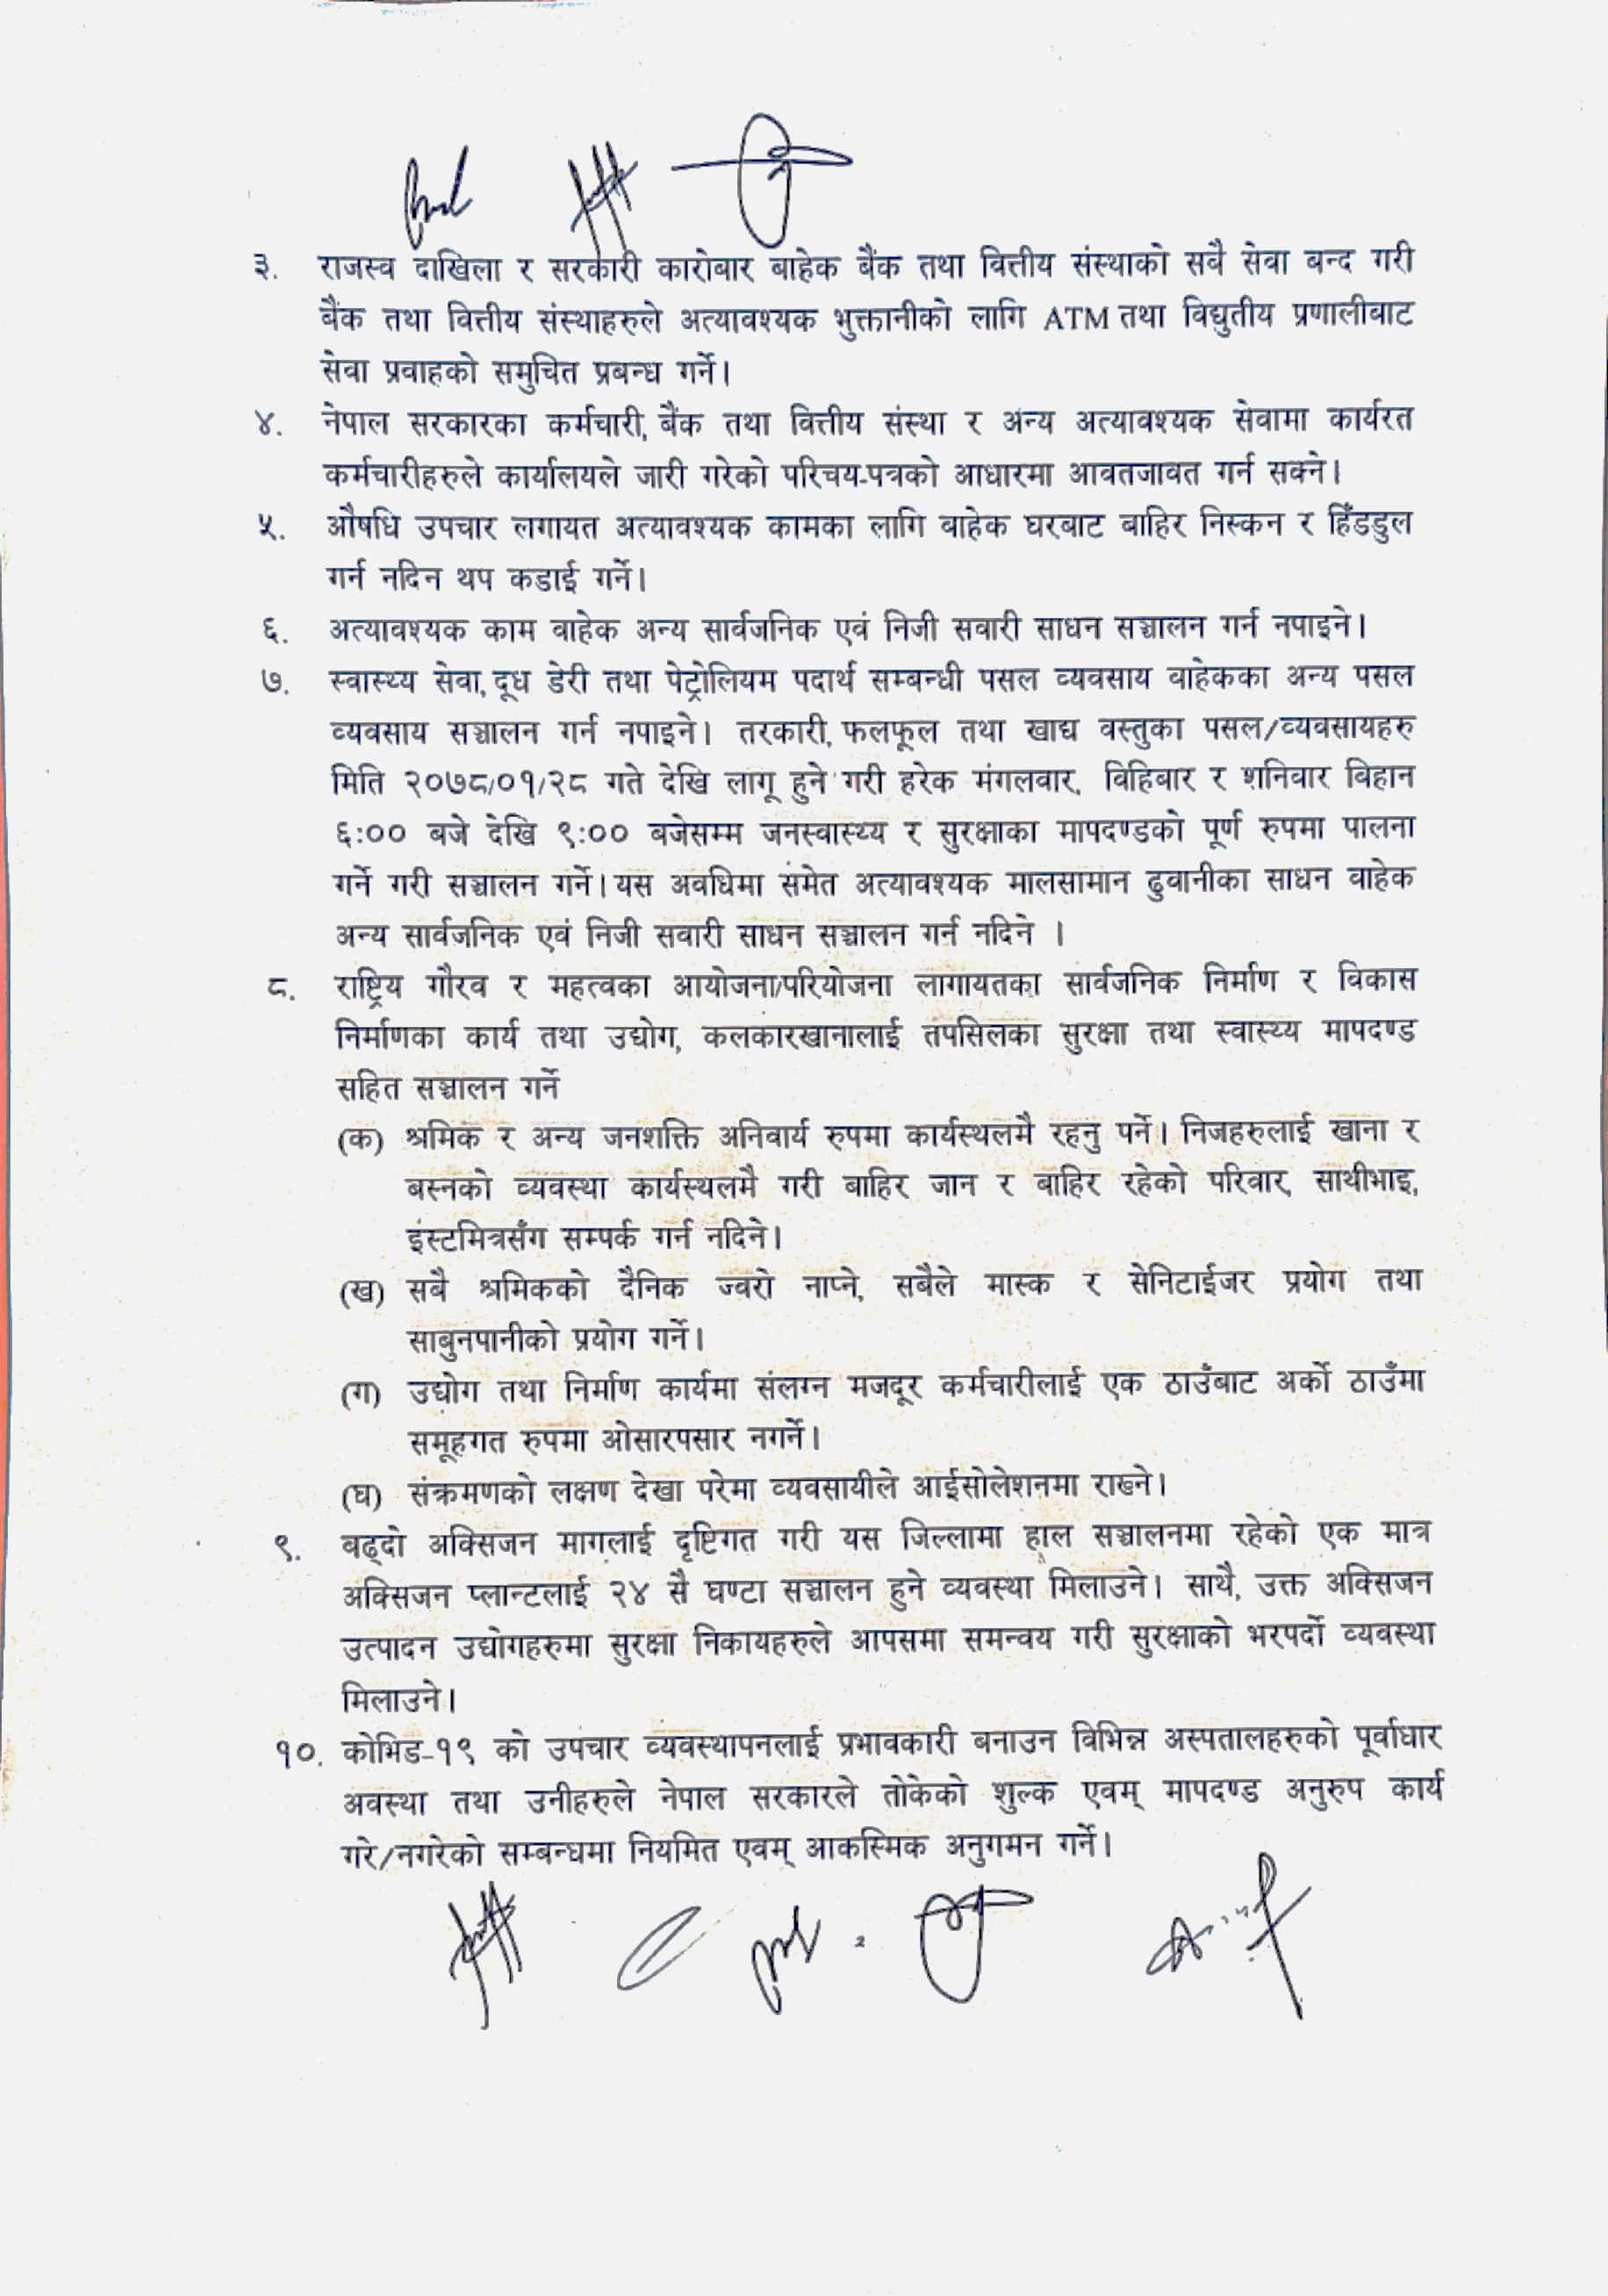 ३. राजस्व दाखिला र सरकारी कारोबार बाहेक बैंक तथा वित्तीय संस्थाको सबै सेवा बन्द गरी
बैंक तथा वित्तीय संस्थाहरुले अत्यावश्यक भुक्तानीको लागि ATM तथा विद्युतीय प्रणालीबाट
सेवा प्रवाहको समुचित प्रबन्ध गर्ने।
४. नेपाल सरकारका कर्मचारी, बैंक तथा वित्तीय संस्था र अन्य अत्यावश्यक सेवामा कार्यरत
कर्मचारीहरुले कार्यालयले जारी गरेको परिचय-पत्रको आधारमा आवतजावत गर्न सक्ने।
५. औषधि उपचार लगायत अत्यावश्यक कामका लागि बाहेक घरबाट बाहिर निस्कन र हिँडडुल
गर्न नदिन थप कडाई गर्ने।
६. अत्यावश्यक काम वाहेक अन्य सार्वजनिक एवं निजी सवारी साधन सञ्चालन गर्न नपाइने।
७. स्वास्थ्य सेवा, दूध डेरी तथा पेट्रोलियम पदार्थ सम्बन्धी पसल व्यवसाय वाहेकका अन्य पसल
व्यवसाय सञ्चालन गर्न नपाइने। तरकारी, फलफूल तथा खाद्य वस्तुका पसल/व्यवसायहरु
मिति २०७८/०१/२८ गते देखि लागू हुने गरी हरेक मंगलवार, विहिबार र शनिवार विहान
६:०० बजे देखि ९:०० बजेसम्म जनस्वास्थ्य र सुरक्षाका मापदण्डको पूर्ण रुपमा पालना
गर्ने गरी सञ्चालन गर्ने। यस अवधिमा समेत अत्यावश्यक मालसामान ढुवानीका साधन वाहेक
अन्य सार्वजनिक एवं निजी सवारी साधन सञ्चालन गर्न नदिने ।
८. राष्ट्रिय गौरव र महत्वका आयोजना/परियोजना लागायतका सार्वजनिक निर्माण र विकास
निर्माणका कार्य तथा उद्योग, कलकारखानालाई तपसिलका सुरक्षा तथा स्वास्थ्य मापदण्ड
सहित सञ्चालन गर्ने
(क) श्रमिक र अन्य जनशक्ति अनिवार्य रुपमा कार्यस्थलमै रहनु पर्ने। निजहरुलाई खाना र
बस्नको व्यवस्था कार्यस्थलमै गरी बाहिर जान र बाहिर रहेको परिवार, साथीभाइ,
इस्टमित्रसँग सम्पर्क गर्न नदिने।
(ख) सबै श्रमिकको दैनिक ज्वरो नाप्ने, सबैले मास्क र सेनिटाईजर प्रयोग तथा
साबुनपानीको प्रयोग गर्ने।
(ग) उद्योग तथा निर्माण कार्यमा संलग्न मजदूर कर्मचारीलाई एक ठाउँबाट अर्को ठाउँमा
समूहगत रुपमा ओसारपसार नगर्ने।
(घ) संक्रमणको लक्षण देखा परेमा व्यवसायीले आईसोलेशनमा राख्ने।
९. बढ्दो अक्सिजन मागलाई दृष्टिगत गरी यस जिल्लामा हाल सञ्चालनमा रहेको एक मात्र
अक्सिजन प्लान्टलाई २४ सै घण्टा सञ्चालन हुने व्यवस्था मिलाउने। साथै, उक्त अक्सिजन
उत्पादन उद्योगहरुमा सुरक्षा निकायहरुले आपसमा समन्वय गरी सुरक्षाको भरपर्दो व्यवस्था
मिलाउने।
१०. कोभिड-१९ को उपचार व्यवस्थापनलाई प्रभावकारी बनाउन विभिन्न अस्पतालहरुको पूर्वाधार
अवस्था तथा उनीहरुले नेपाल सरकारले तोकेको शुल्क एवम् मापदण्ड अनुरुप कार्य
गरे/नगरेको सम्बन्धमा नियमित एवम् आकस्मिक अनुगमन गर्ने।
२